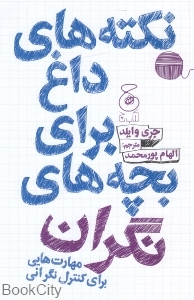 نکته‌های
داغ
برای
بچه‌های
نگران
جری وایلد
مترجم:
الهام پورمحمد
مهارت‌هایی
برای کنترل نگرانی
BookCity